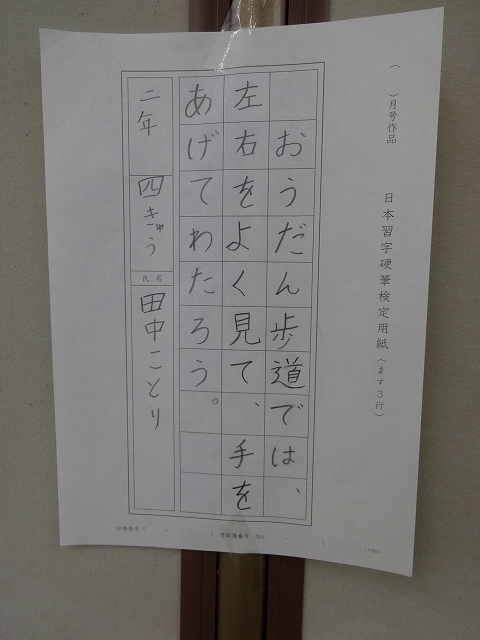 ( )月号作品
日本習字硬筆検定用紙(ます3行)
おうだん歩道では、
左右をよく見て、手を
あげてわたろう。
二年 四きゅう
氏名
田中ことり